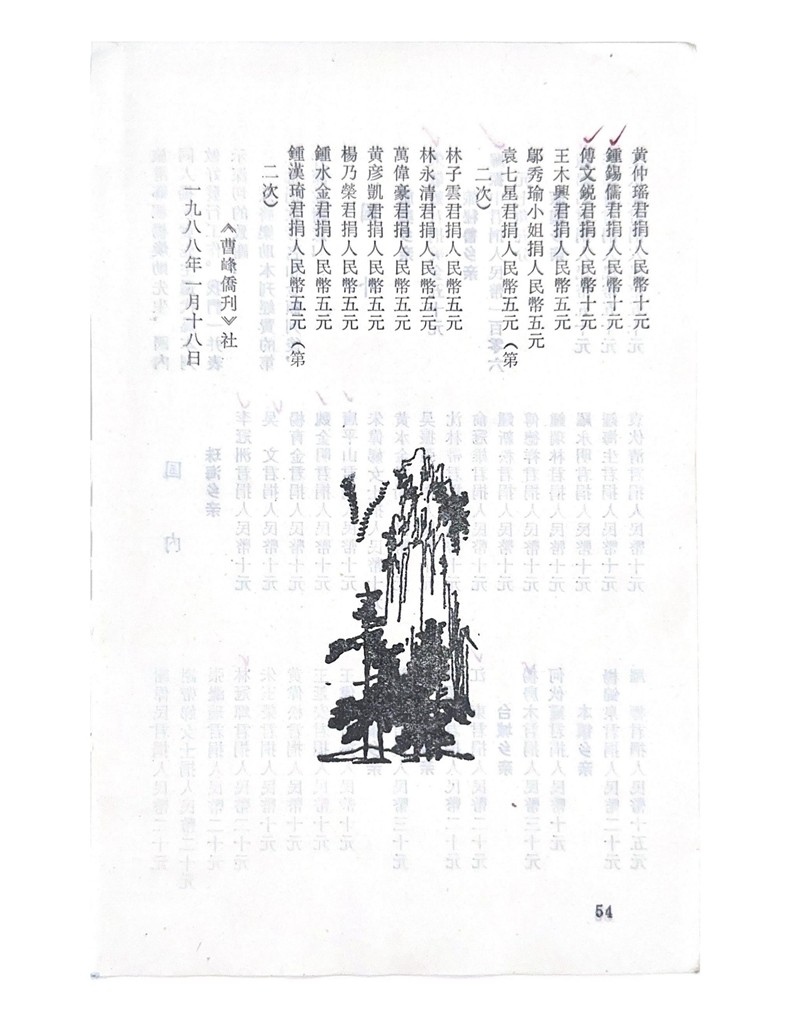 黃仲瑤君捐人民幣十元
鍾錫儒君捐人民幣十元
傅文銳君捐人民幣十元
王木興君捐人民幣五元
鄔秀瑜小姐捐人民幣五元
袁七星君捐人民幣五元（第
二次）
林子雲君捐人民幣五元
林永清君捐人民幣五元
萬偉豪君捐人民幣五元
黃彦凱君捐人民幣五元
楊乃榮君捐人民幣五元
鍾水金君捐人民幣五元
鍾漢琦君捐人民幣五元（第
二次）
《曹峰僑刊》社
一九八八年一月十八日
54